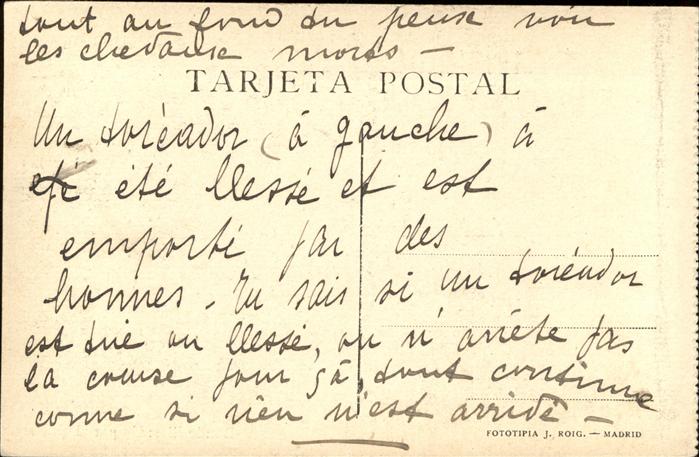 tout au fond tu peux voir
les chevaux morts —
TARJETA POSTAL
Un toréador (à gauche) à
été blessé et est
emporté par des
hommes. Tu sais si un toréador
est tué ou blessé, on n'arrète pas
la course pour çà, tout continue
comme si rien n'est arrivé —
FOTOTIPIA J. ROIG. — MADRID